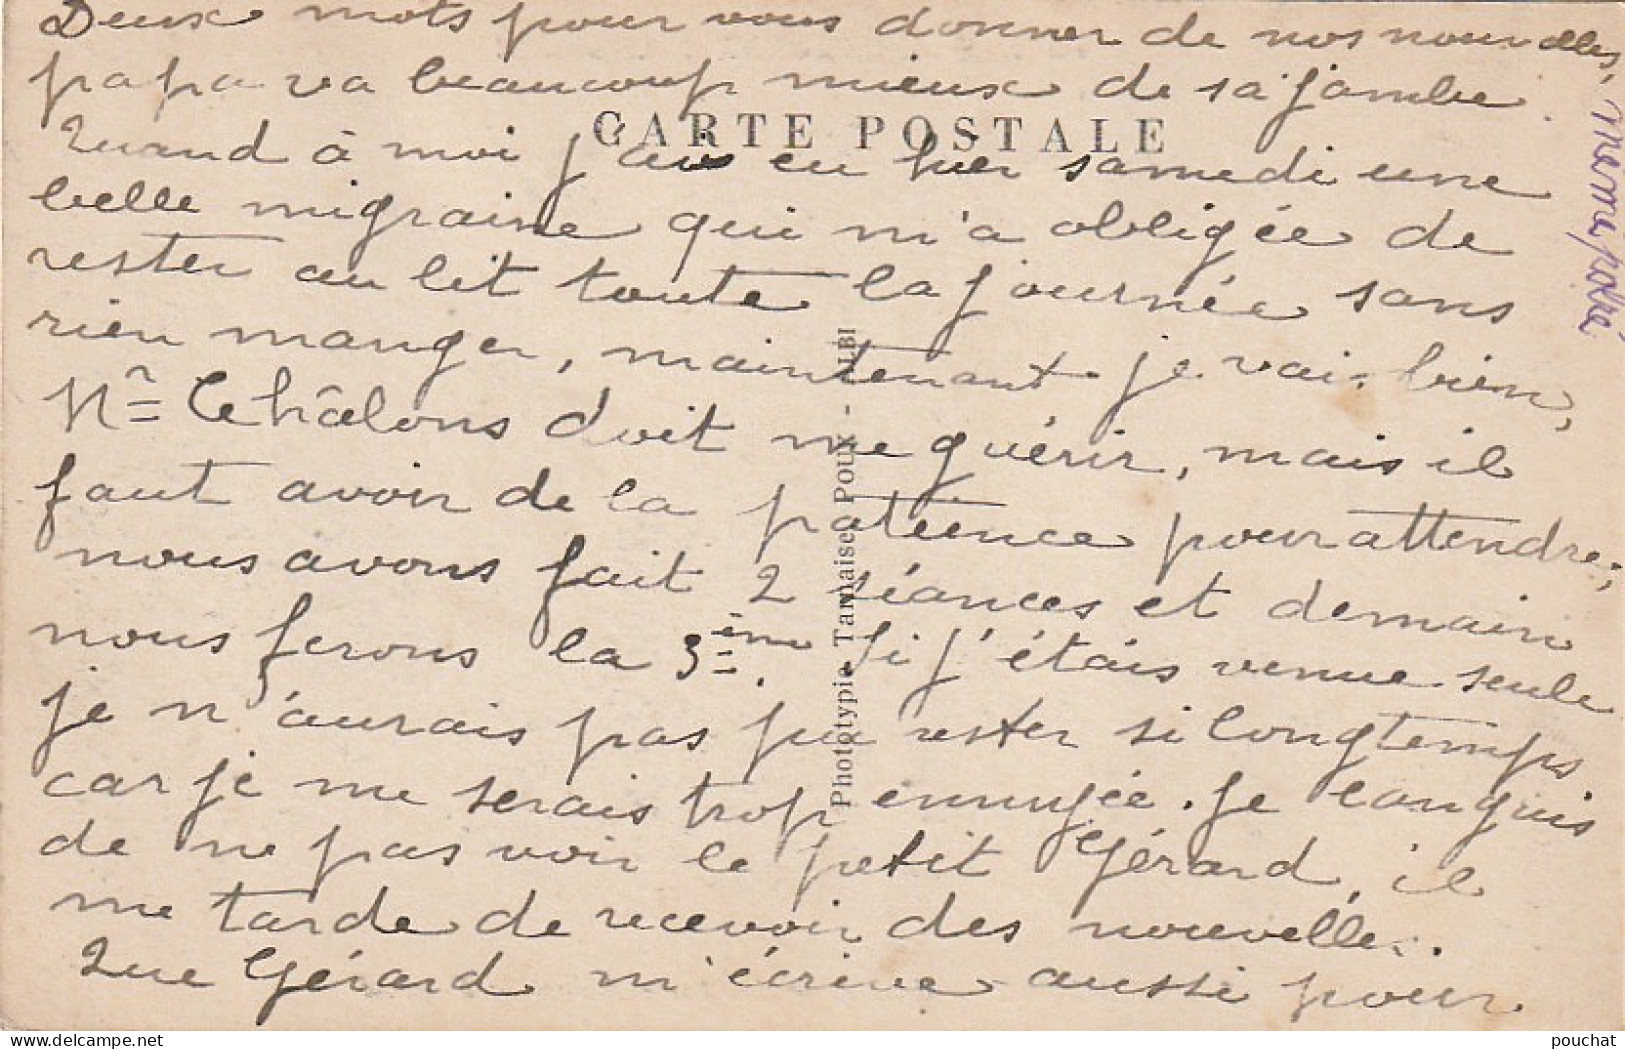 Deux mots pour vous donner de nos nouvelles,
papa va beaucoup mieux de sa jambe.
CARTE POSTALE
Quand à moi j'ai eu hier samedi une
belle migraine qui m'a obligée de
rester au lit toute la journée sans
rien manger, maintenant je vais bien,
Mr Châlons doit me guérir, mais il
faut avoir de la patience pour attendre;
nous avons fait 2 séances et demain
nous ferons la 3ème. Si j'étais venue seule
je n'aurais pas pu rester si longtemps
car je me serais trop ennuyée. Je languis
de ne pas voir le petit Gérard, il
me tarde de recevoir des nouvelles.
Que Gérard m'écrive aussi pour
Phototypie Tarnaise Poux
ALBI
pouchat